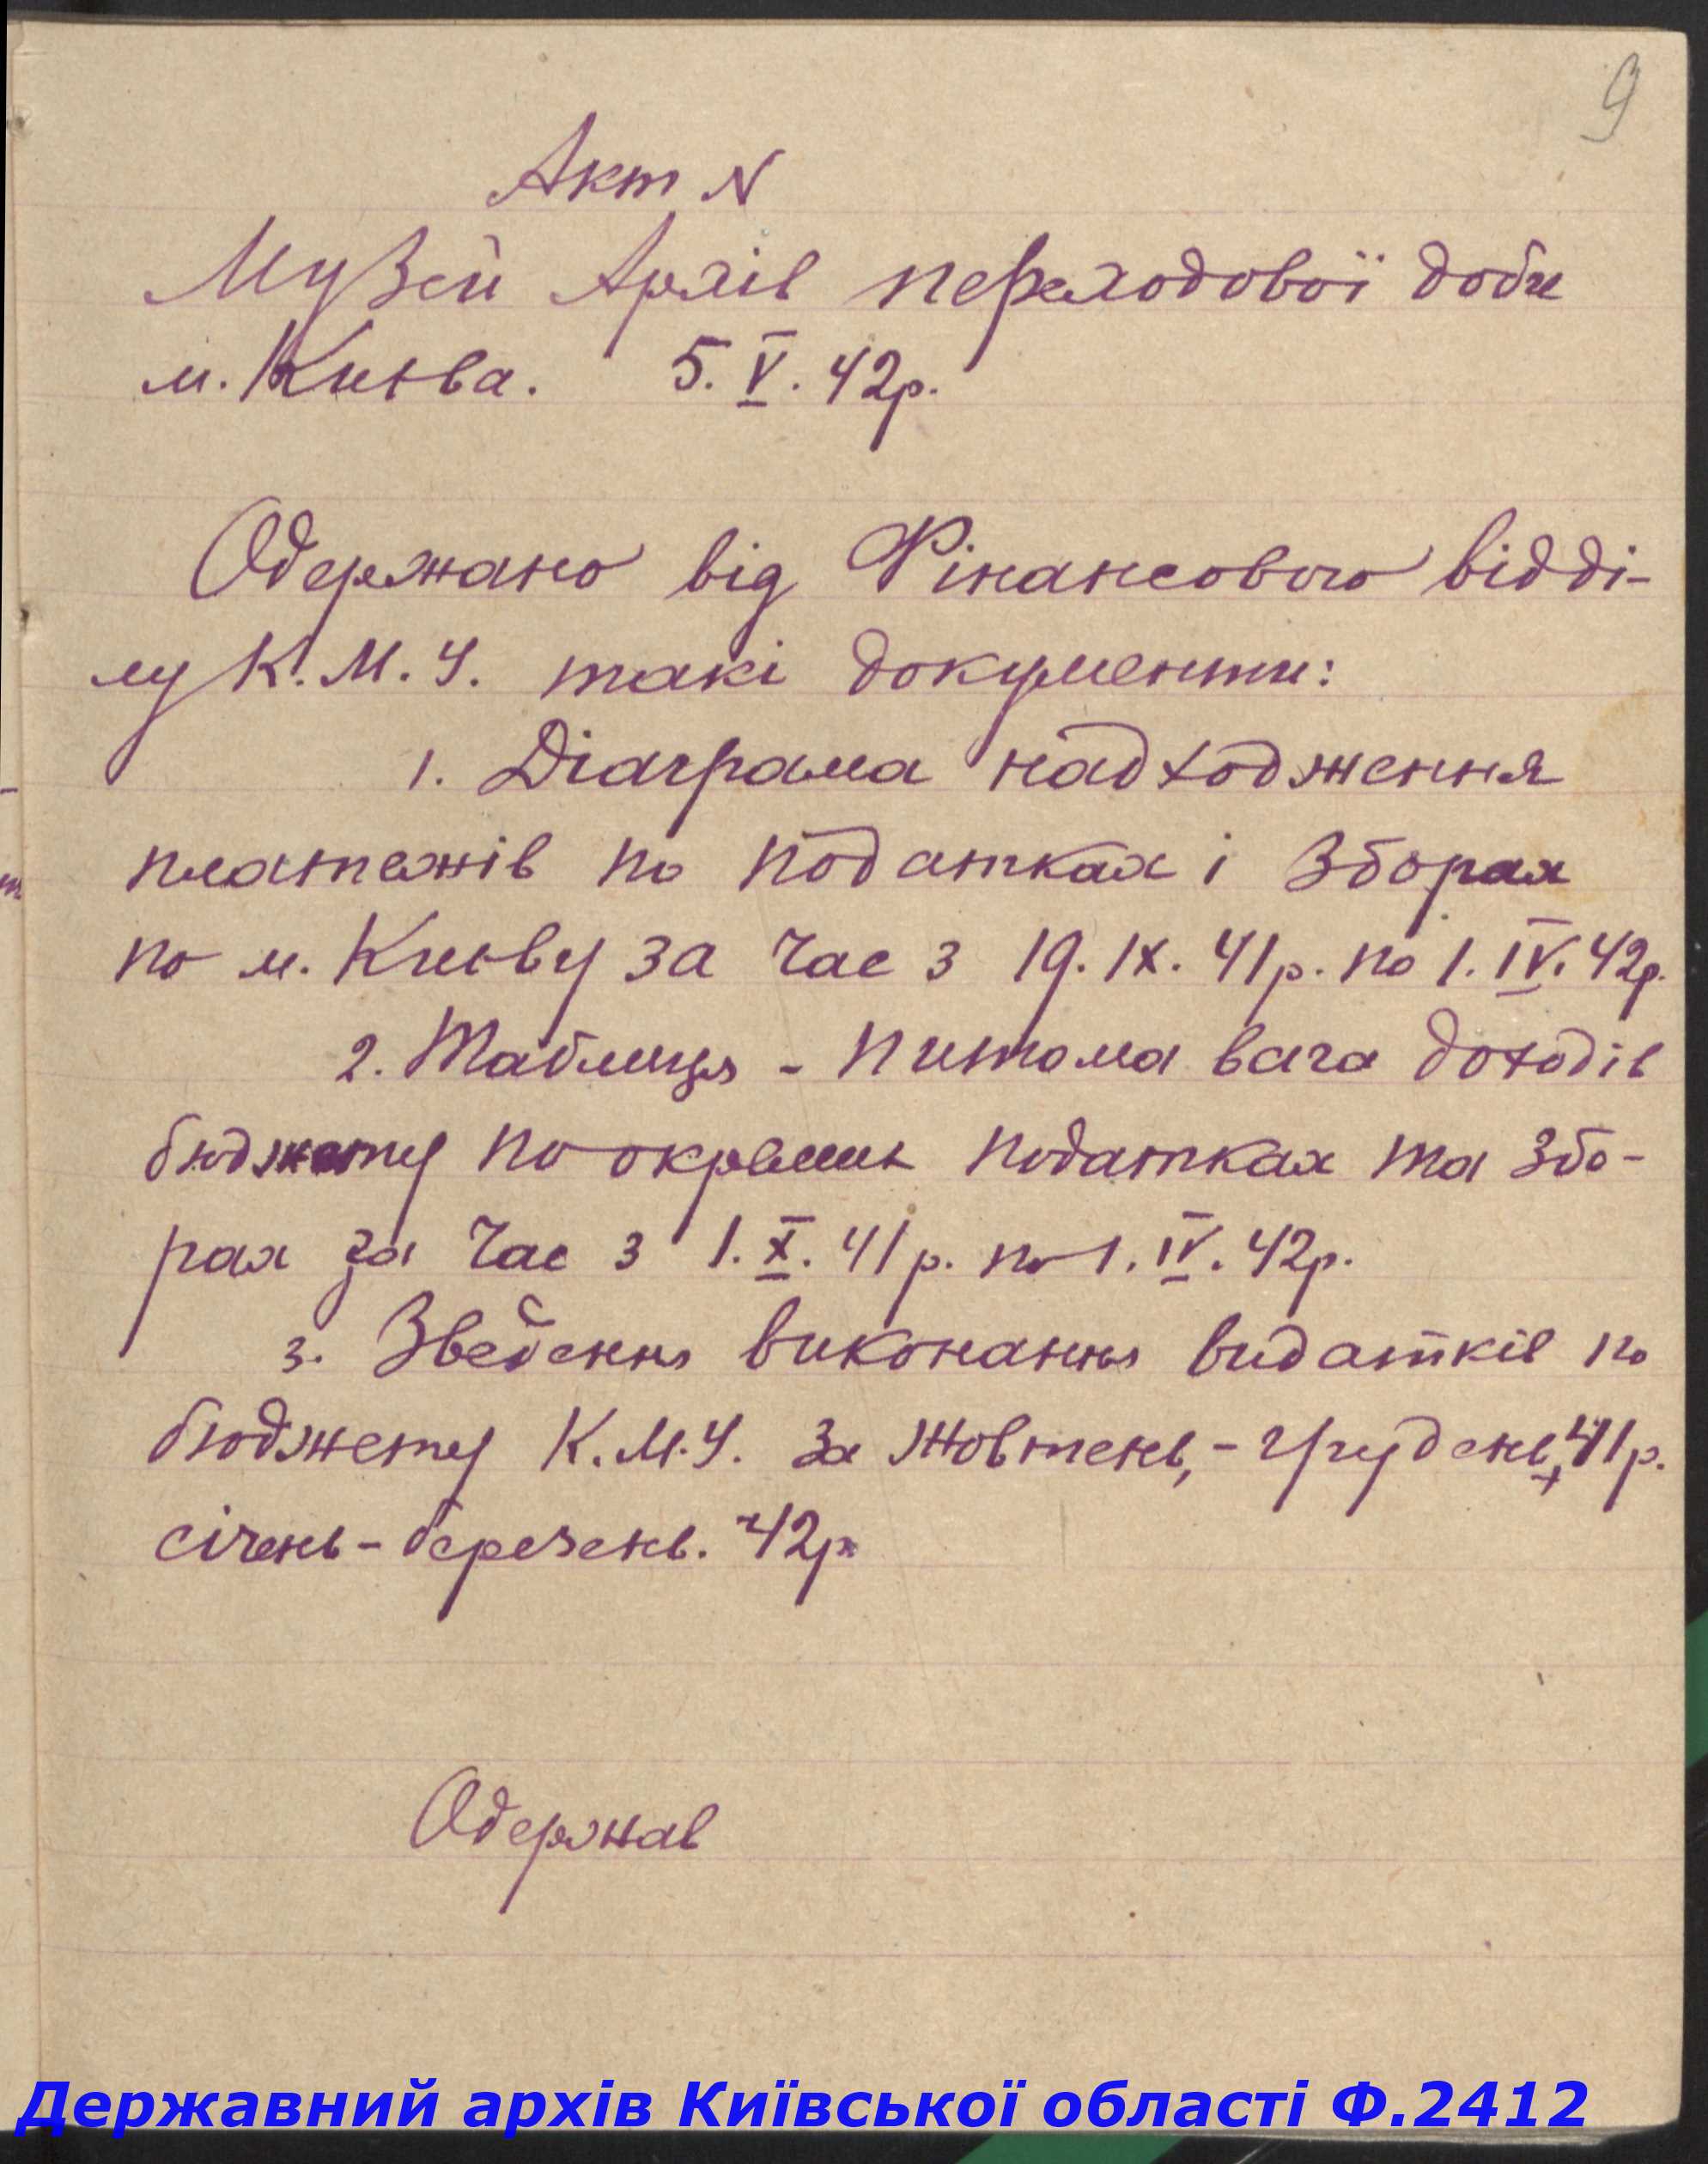 9
Акт N
Музей Архів переходової доби
м. Києва. 5. V. 42р.
Одержано від Фінансового відді-
лу К.М.У. такі документи:
1. Діаграма надходження
платежів по податках і зборах
по м. Києву за час з 19. IX. 41р. по 1. IV. 42р.
2. Таблиця - питома вага доходів
бюджету по окремих податках та збо-
рах за час з 1. X. 41р. по 1. IV. 42р.
3. Зведення виконання видатків по
бюджету К.М.У. за жовтень, - грудень, 41р.
січень - березень. 42р.
Одержав
Державний архів Київської області Ф.2412